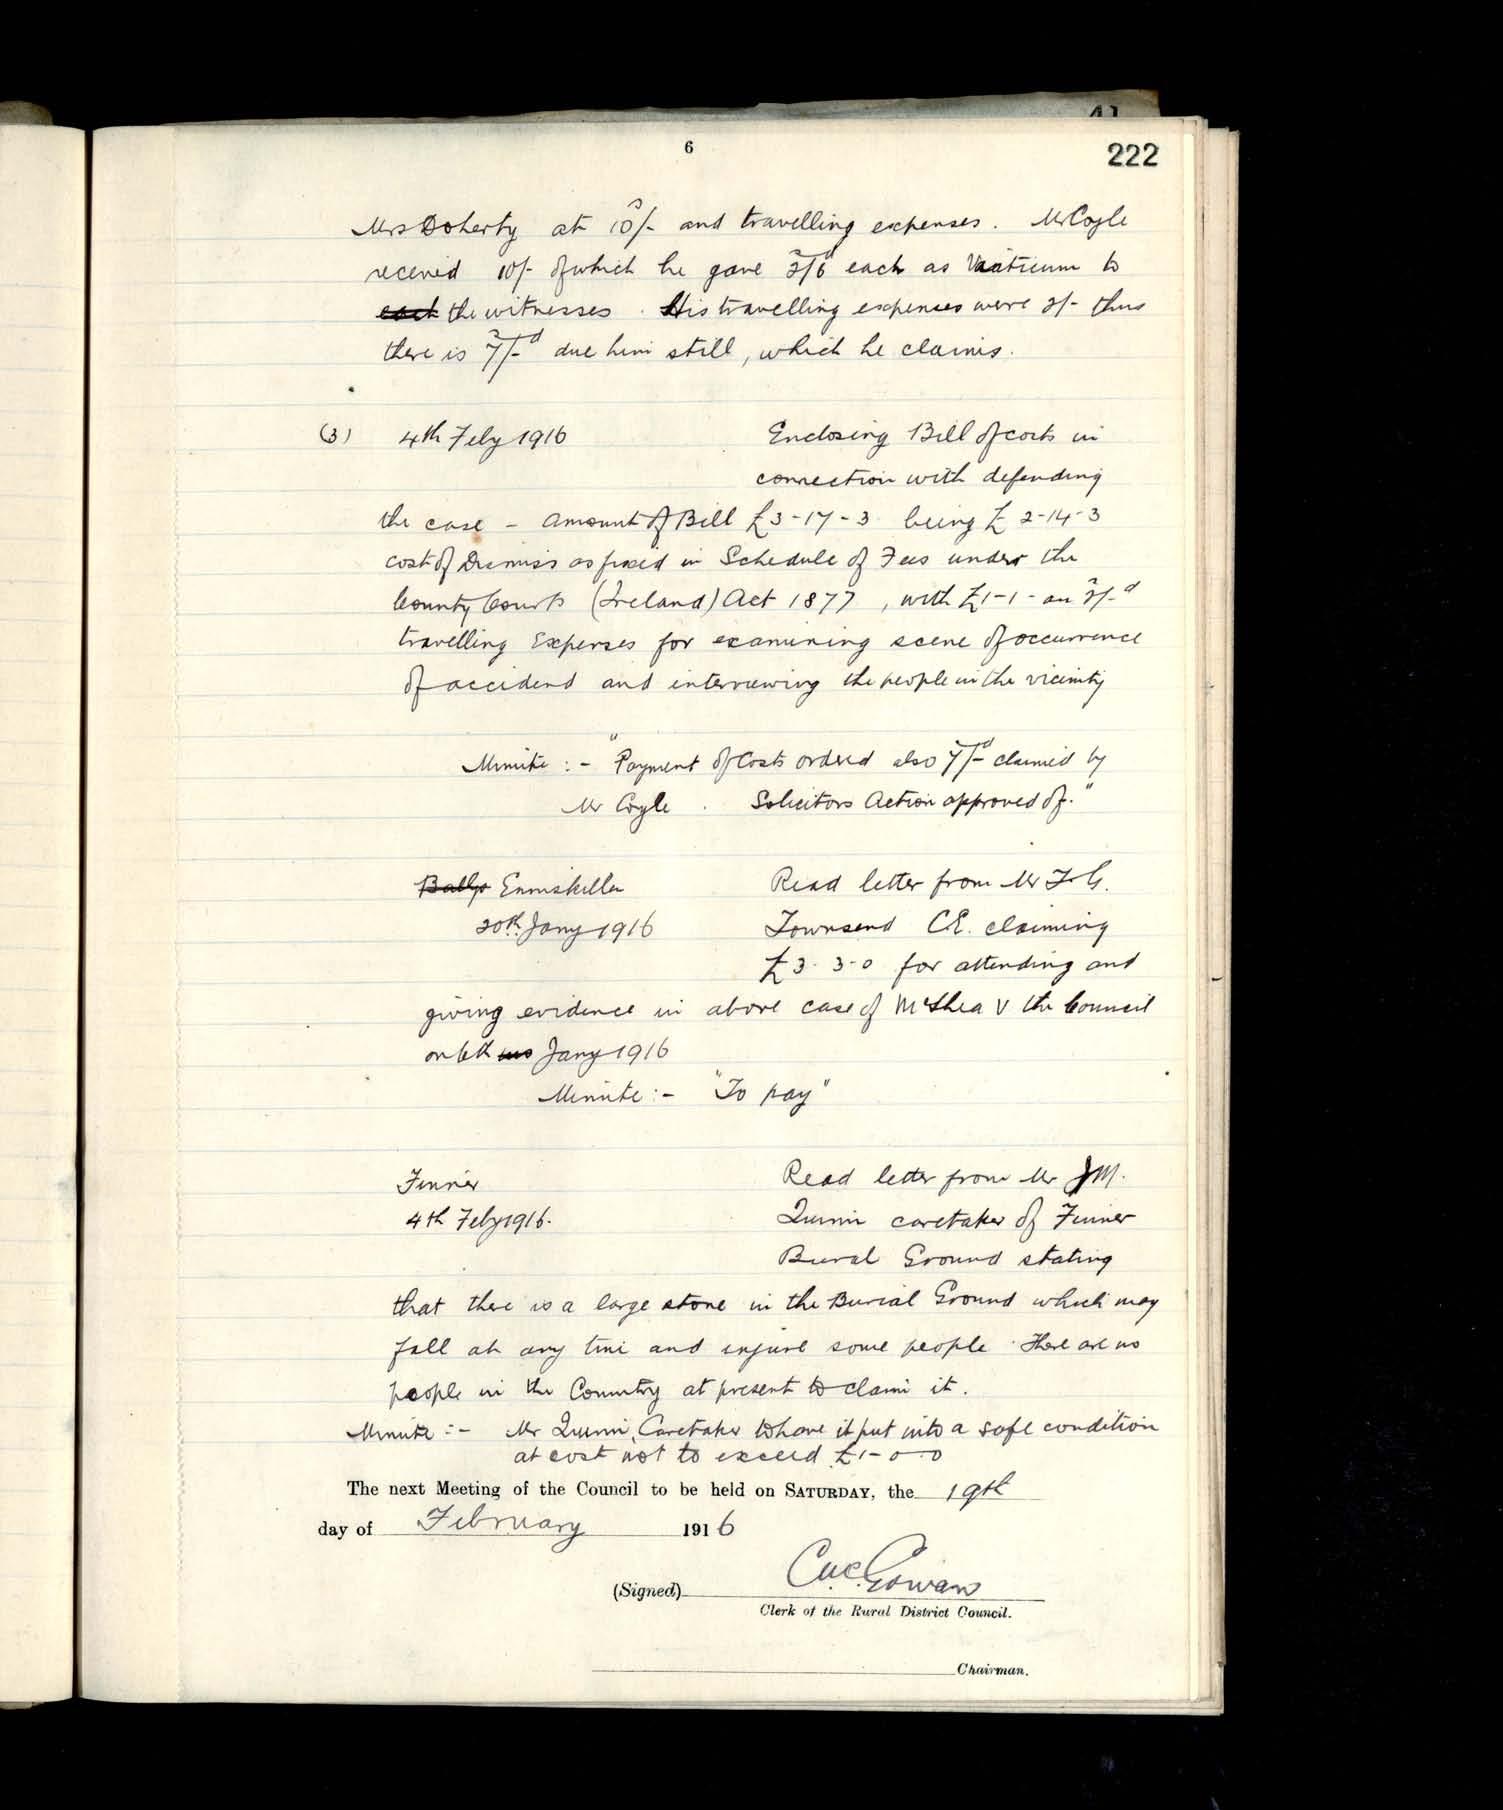 6
222
Mrs Doherty at 10/- and travelling expenses. Mr Coyle
received 10/- of which he gave 2/6 each as Viaticum to
each the witnesses. His travelling expenses were 2/- thus
there is 7/- due him still, which he claims.
(3) 4th Feby 1916 Enclosing Bill of costs in
connection with defending
the case - amount of Bill £3-17-3 being £2-14-3
cost of Dismiss as fixed in Schedule of Fees under the
County Courts (Ireland) Act 1877, with £1-1- an 2/-d
travelling Expenses for examining scene of occurrence
of accidend and interviewing the people in the vicinity
Minute :- "Payment of Costs ordered also 7/-d claimed by
Mr Coyle. Solicitors Action approved of."
Ballys Enniskillen Read letter from Mr F.G.
20th Jany 1916 Townsend C.E. claiming
£3-3-0 for attending and
giving evidence in above case of McShea V the Council
on 6th Jany 1916
Minute :- "To pay"
Finner Read letter from Mr J M.
4th Feby 1916. Quinn caretaker of Finner
Bural Ground stating
that there is a large stone in the Burial Ground which may
fall at any time and injure some people. There are no
people in the Country at present to claim it.
Minute :- Mr Quinn, Caretaker to have it put into a safe condition
at cost not to exceed £1-0-0
The next Meeting of the Council to be held on SATURDAY, the 19th
day of February 1916
(Signed) C McGowan
Clerk of the Rural District Council.
Chairman.